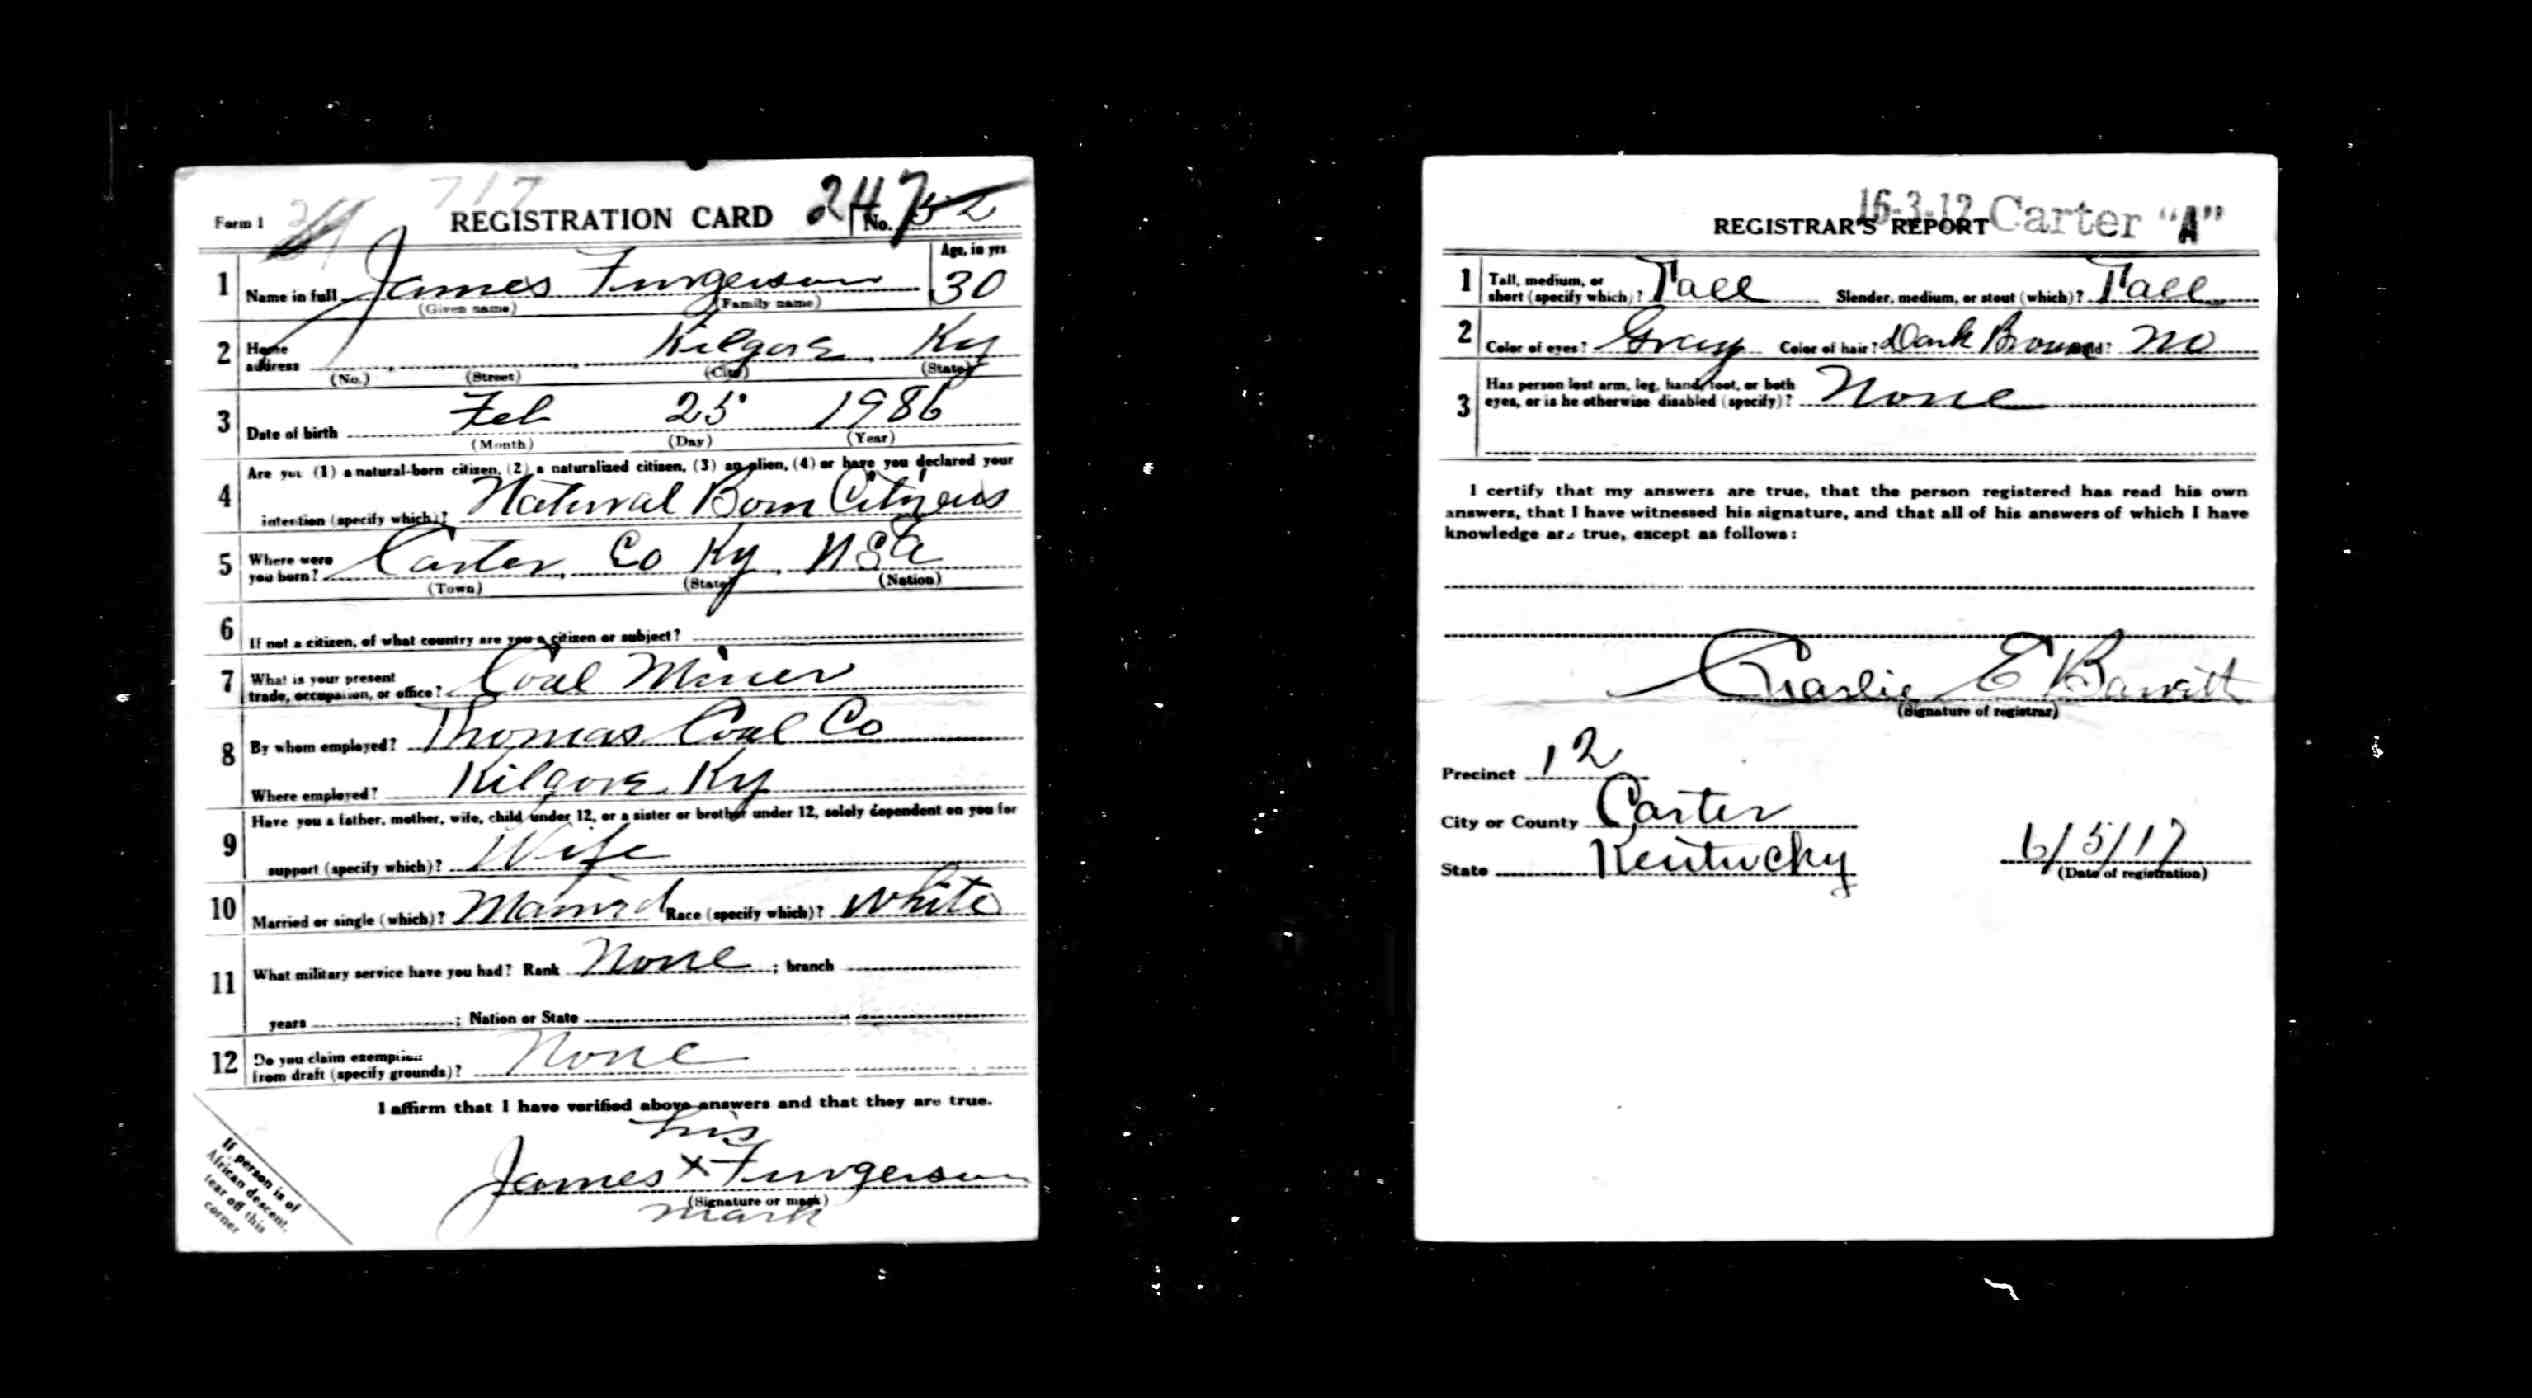 717
Form 1 REGISTRATION CARD 247 No. 52
1 Name in full James Furgerson Age, in yrs 30
(Given name) (Family name)
2 Home address Kilgore, Ky
(No.) (Street) (City) (State)
3 Date of birth Feb 25 1986
(Month) (Day) (Year)
4 Are you (1) a natural-born citizen, (2) a naturalized citizen, (3) an alien, (4) or have you declared your
intention (specify which)? Natural Born Citizens
5 Where were you born? Carter, Co Ky, USA
(Town) (State) (Nation)
6 If not a citizen, of what country are you a citizen or subject?
7 What is your present trade, occupation, or office? Coal Miner
8 By whom employed? Thomas Coal Co
Where employed? Kilgore Ky
9 Have you a father, mother, wife, child under 12, or a sister or brother under 12, solely dependent on you for
support (specify which)? Wife
10 Married or single (which)? Married Race (specify which)? White
11 What military service have you had? Rank None ; branch
years ; Nation or State
12 Do you claim exemption from draft (specify grounds)? None
I affirm that I have verified above answers and that they are true.
his
James X Furgerson
(Signature or mark)
mark
If person is of
African descent,
tear off this
corner
16-3-12 Carter "A"
REGISTRAR'S REPORT
1 Tall, medium, or short (specify which)? Tall Slender, medium, or stout (which)? Tall
2 Color of eyes? Gray Color of hair? Dark Brown No
3 Has person lost arm, leg, hand, foot, or both
eyes, or is he otherwise disabled (specify)? None
I certify that my answers are true, that the person registered has read his own
answers, that I have witnessed his signature, and that all of his answers of which I have
knowledge are true, except as follows:
Charlie E
(Signature of registrar)
Precinct 12
City or County Carter
State Kentucky 6/5/17
(Date of registration)